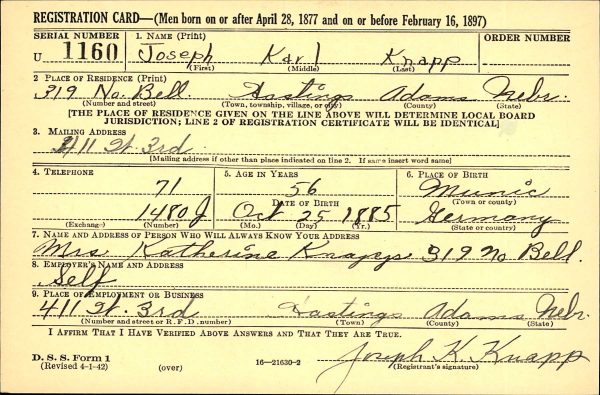 REGISTRATION CARD—(Men born on or after April 28, 1877 and on or before February 16, 1897)
SERIAL NUMBER 1. NAME (Print) ORDER NUMBER
U 1160 Joseph Karl Knapp
(First) (Middle) (Last)
2 PLACE OF RESIDENCE (Print)
319 No. Bell Hastings Adams Nebr.
(Number and street) (Town, township, village, or city) (County) (State)
[THE PLACE OF RESIDENCE GIVEN ON THE LINE ABOVE WILL DETERMINE LOCAL BOARD
JURISDICTION; LINE 2 OF REGISTRATION CERTIFICATE WILL BE IDENTICAL]
3. MAILING ADDRESS
411 W. 3rd
[Mailing address if other than place indicated on line 2. If same insert word same]
4. TELEPHONE 5. AGE IN YEARS 6. PLACE OF BIRTH
71 56 Munic
DATE OF BIRTH (Town or county)
1480 J Oct 25 1885 Germany
(Exchange) (Number) (Mo.) (Day) (Yr.) (State or country)
7. NAME AND ADDRESS OF PERSON WHO WILL ALWAYS KNOW YOUR ADDRESS
Mrs. Katherine Knapp 319 No Bell.
8. EMPLOYER'S NAME AND ADDRESS
Self
9. PLACE OF EMPLOYMENT OR BUSINESS
411 W. 3rd Hastings Adams Nebr.
(Number and street or R. F. D. number) (Town) (County) (State)
I AFFIRM THAT I HAVE VERIFIED ABOVE ANSWERS AND THAT THEY ARE TRUE.
D. S. S. Form 1
(Revised 4-1-42) (over) 16—21630-2 Joseph K. Knapp
(Registrant's signature)